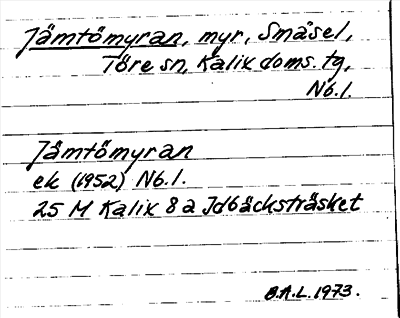 Jämtömyran, myr, Småsel,
Töre sn, Kalix doms. tg,
Nb.l.
Jämtömyran
ek (1952) Nb.l.
25 M Kalix 8 a Idbäcksträsket
B.A.L. 1973.